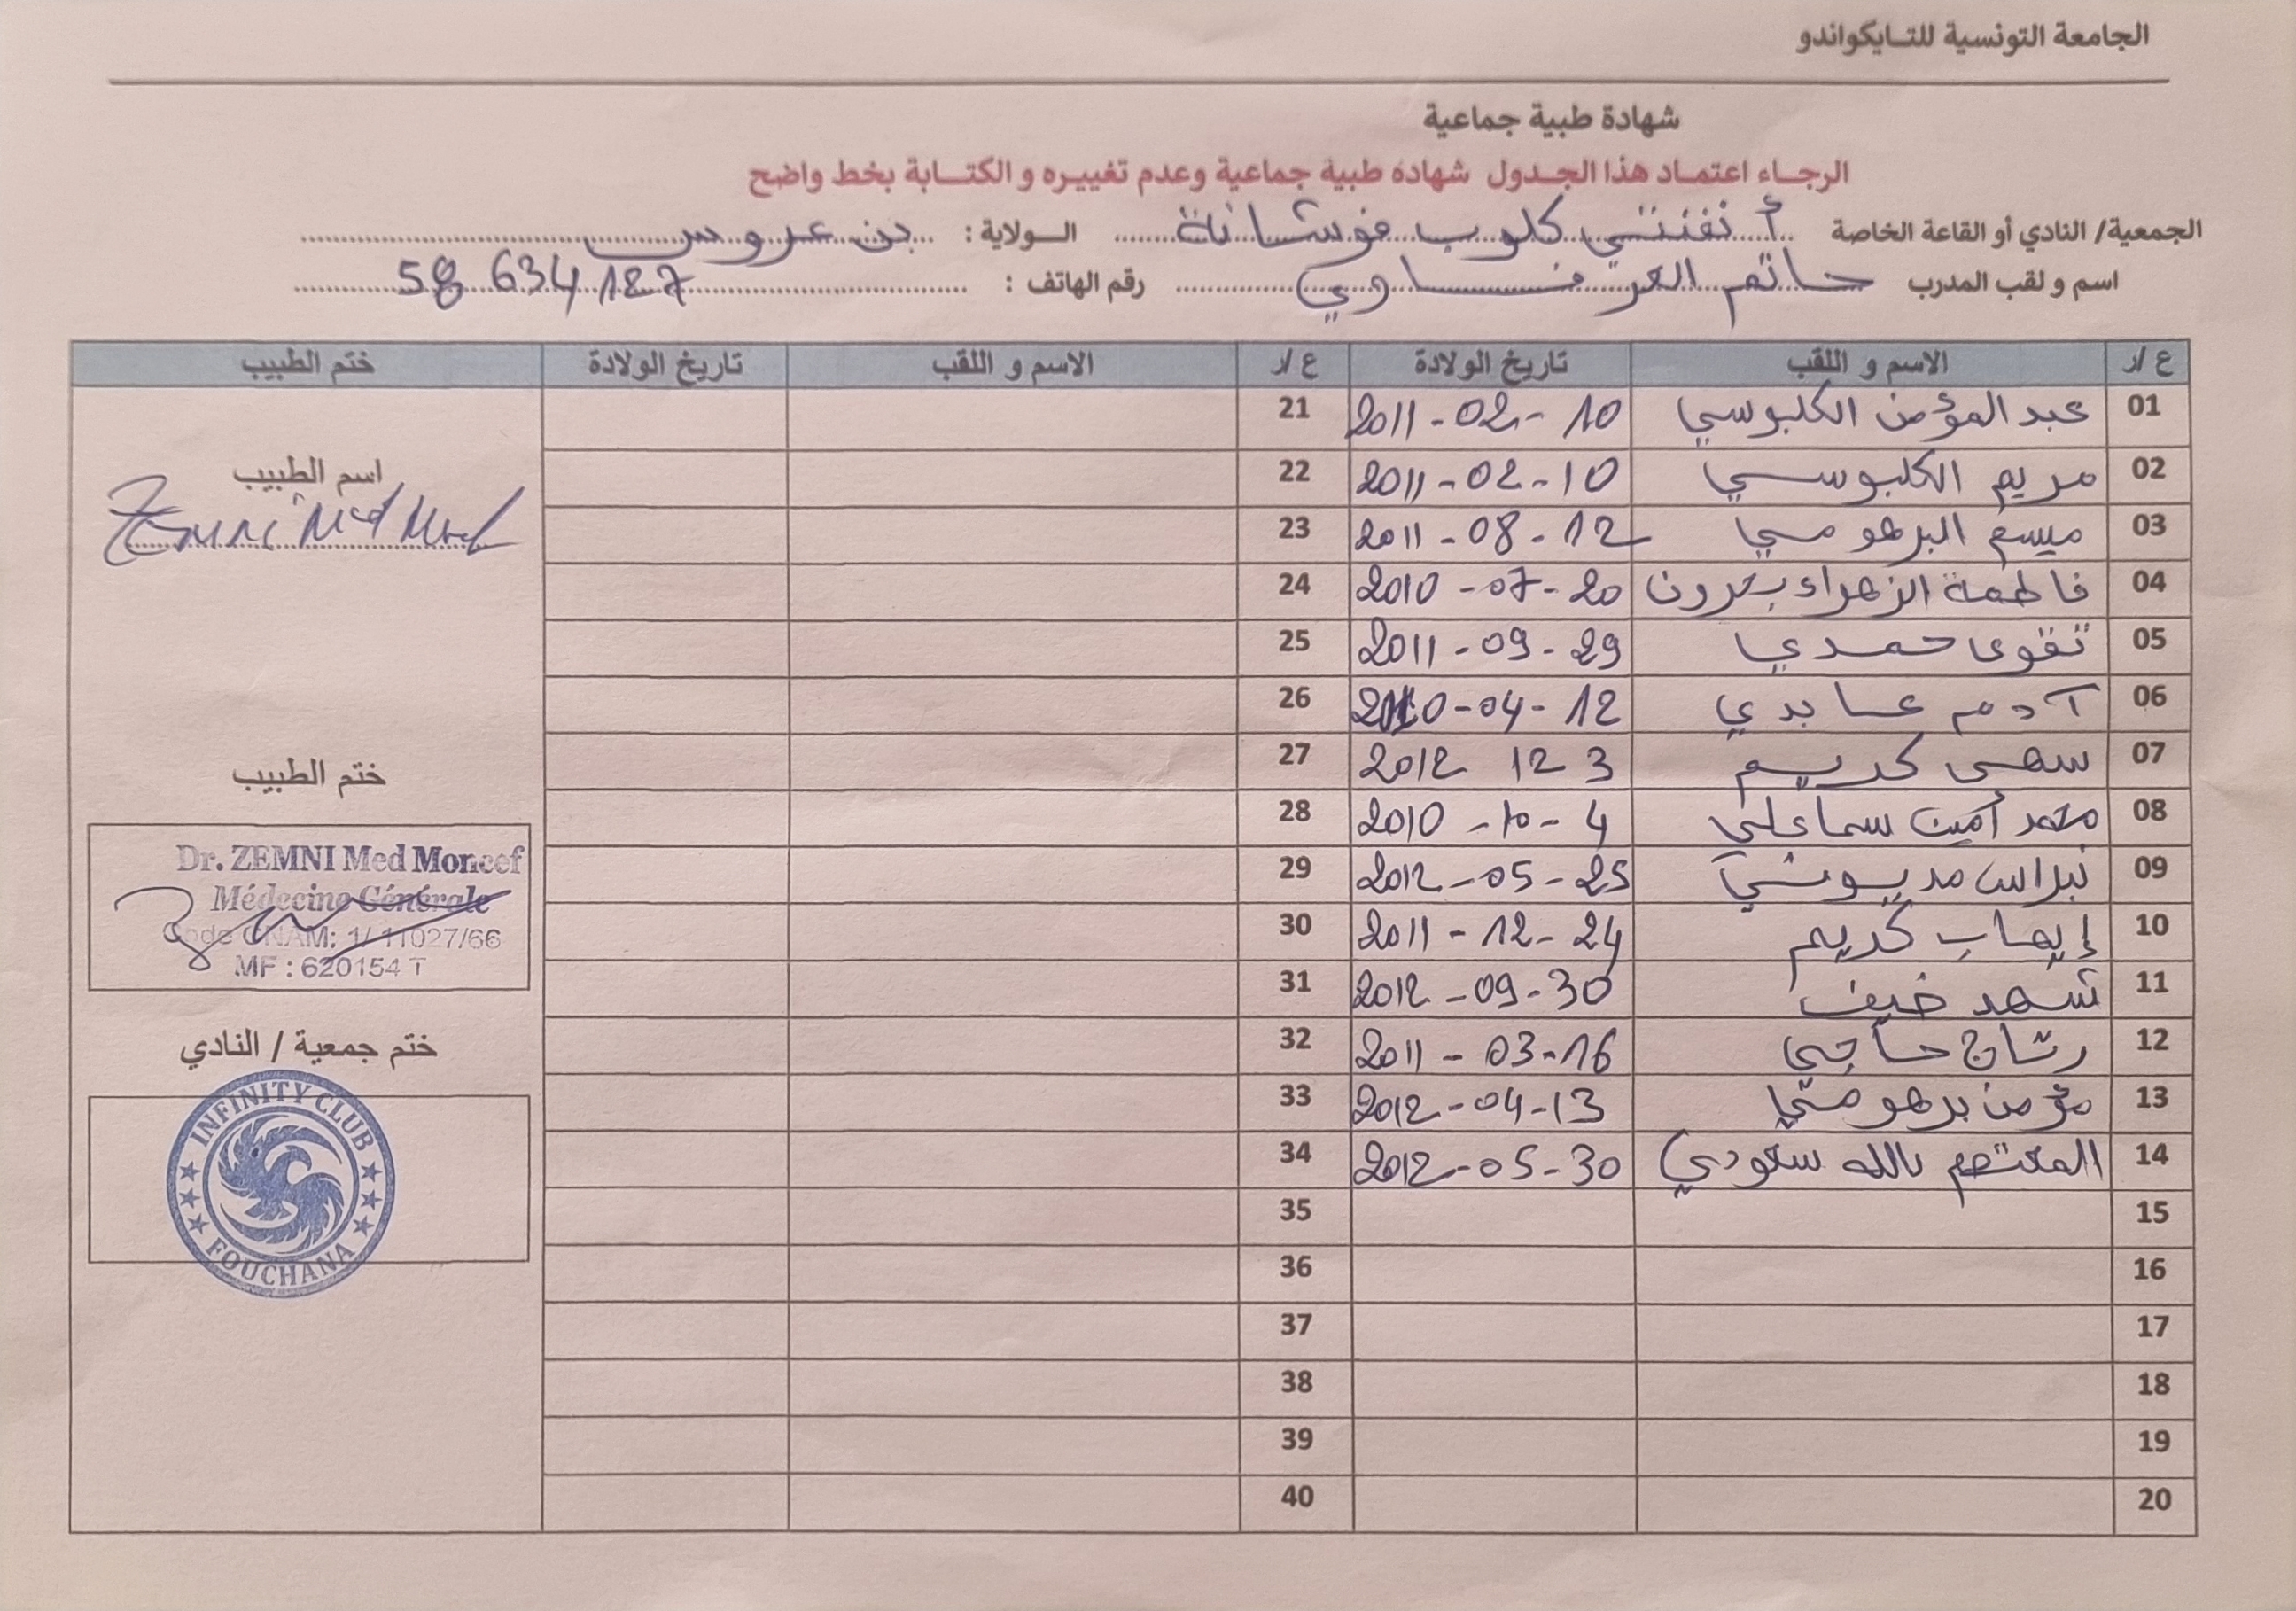 الجامعة التونسية للتايكواندو
شهادة طبية جماعية
الرجاء اعتماد هذا الجدول شهادة طبية جماعية وعدم تغييره و الكتابة بخط واضح
الجمعية/ النادي أو القاعة الخاصة أنفنتي كلوب فوشانة الولاية : بن عروس
اسم و لقب المدرب حاتم العرفاوي رقم الهاتف : 58 634 187
ع /ر الاسم و اللقب تاريخ الولادة ع /ر الاسم و اللقب تاريخ الولادة ختم الطبيب
01 عبد المؤمن الكلبوسي 2011-02-10 21
02 مريم الكلبوسي 2011-02-10 22
03 ميسم البرهومي 2011-08-12 23
04 فاطمة الزهراء 2010-07-20 24
05 تقوى حمدي 2011-09-29 25
06 آدم عابدي 2010-04-12 26
07 سهى كريم 2012 12 3 27
08 محمد أمين سماعلي 2010-10-4 28
09 نبراس مديوني 2012-05-25 29
10 إيهاب كريم 2011-12-24 30
11 شهد ضيف 2012-09-30 31
12 رتاج حاجي 2011-03-16 32
13 مؤمن برهومي 2012-04-13 33
14 المعتصم بالله سعودي 2012-05-30 34
15 35
16 36
17 37
18 38
19 39
20 40
اسم الطبيب
Zemni Med
ختم الطبيب
Dr. ZEMNI Med Moncef
Médecine Générale
Code CNAM: 1/ 11027/66
MF : 620154 T
ختم جمعية / النادي
INFINITY CLUB
FOUCHANA